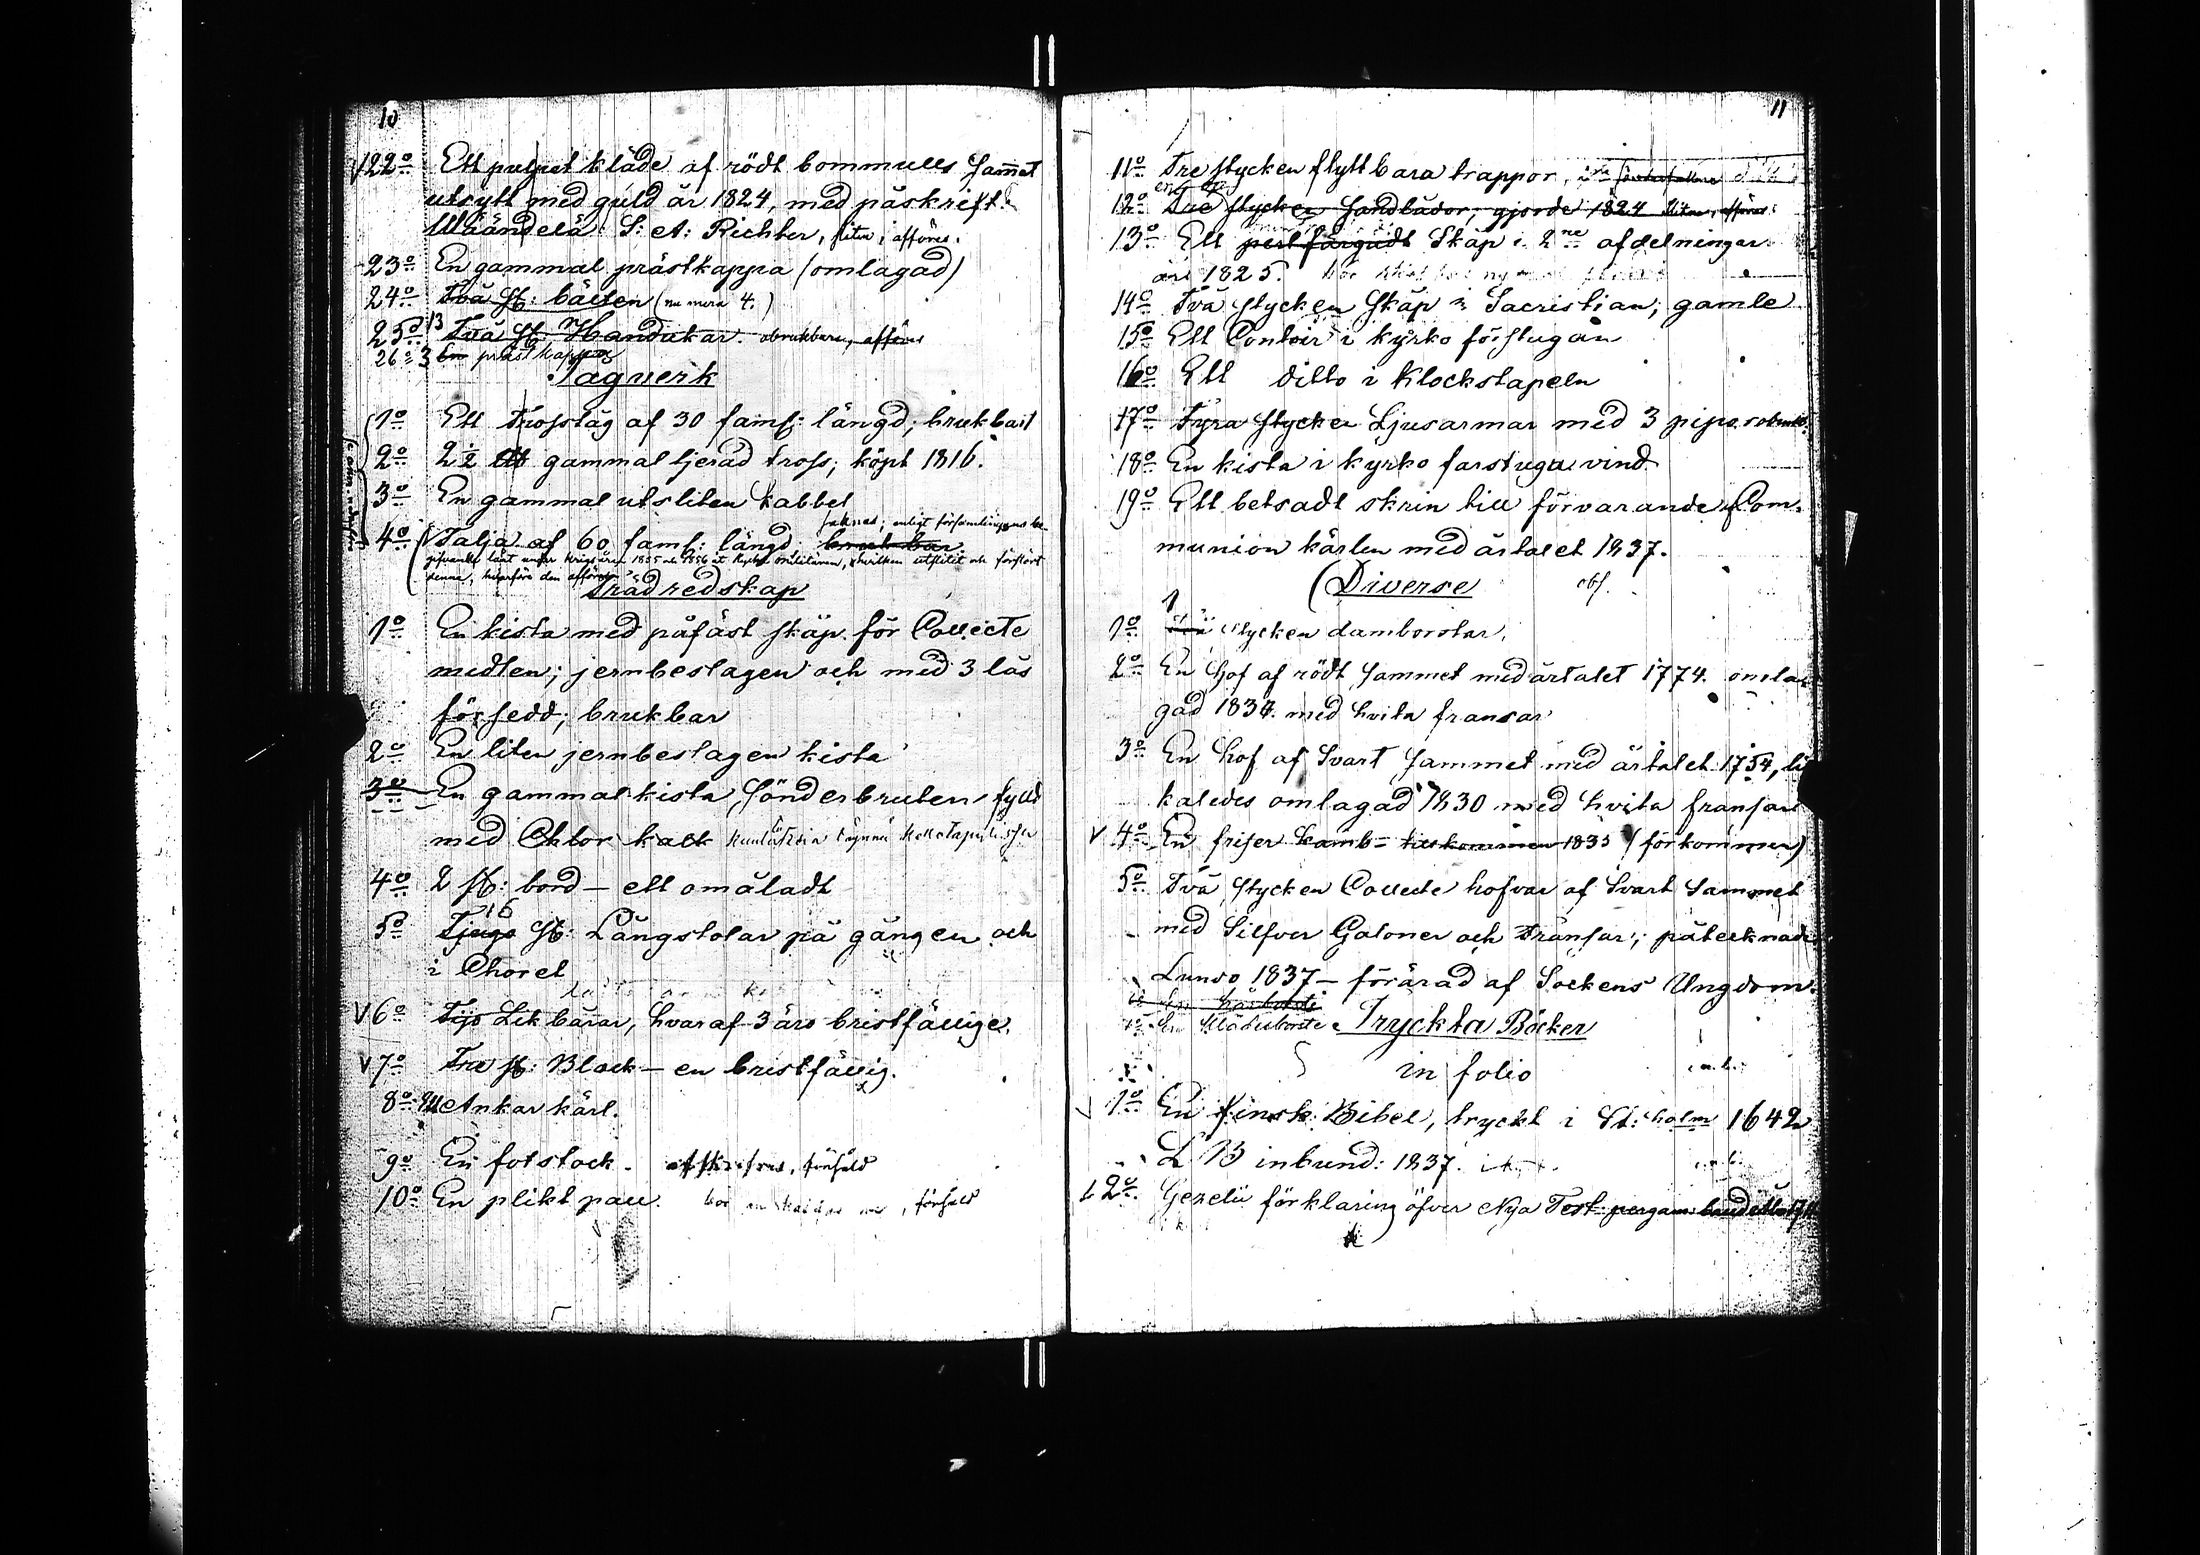 10
V 22o Ett pulpet kläde af rödt bommulls Sammet
utsytt med guld år 1824, med påskrift:
S: A: Richter, sliten, afföres.
23o En gammal prästkappa (omlagad)
24o Två St: bäcken (nu mera 4.)
25o 13 Två St: Handukar. obrukbara, afföres
26o 3 en prästkappor
Tagverk
1o Ett Trosståg af 30 famn: längd; brukbart
2o 2 1/2 gammal tjerad tross; köpt 1816.
3o En gammal utsliten kabbel
saknas; enligt församlingens be-
4o Talja af 60 famn: längd brukbar
lånt under krigsåren 1855 och 1856 åt militären, hvilken utslitit och förstört
denna, hvarföre den afföres
Trädredskap
1o En kista med påfäst skåp för Collecte
medlen; jernbeslagen och med 3 lås
försedd; brukbar
2o En liten jernbeslagen kista
3o En gammal kista, sönderbruten, fylld
med Chlor kalk
4o 2 St: bord – ett omåladt
16
5o Tjugo St: Långstolar på gången och
i Choret
V 6o Tio Lik bårar, hvaraf 3 äro bristfällige.
V 7o Tre St: Block – en bristfällig.
8o Ankar kärl.
9o En fotstock. , försåld
10o En plikt pall. , försåld
11
11o Tre stycken flyttbara trappor,
12o Tre stycken Sandlådor, gjorde 1824 slitna, afföres:
13o Ett perlfärgadt Skåp i 2ne afdelningar
äri 1825.
14o Två stycken Skåp i Sacristian; gamle
15o Ett Contoir i kyrko förstugan
16o Ett ditto i Klockstapeln
17o Fyra stycken Ljusarmar med 3 pipor
18o En kista i kyrko farstuga vind
19o Ett betsadt skrin till förvarande Com-
munion kärlen med årtalet 1837.
Diverse
1o stycken damborstar.
2o En Hof af rödt Sammet med årtalet 1774. omla-
gad 1837. med hvita fransar
3o En Hof af Svart Sammet med årtalet 1754, li-
kaledes omlagad 1830 med hvita fransar
V 4o En friser kamb – tillkommen 1835 (förkommen)
5o Två stycken Collecte hofvar af Svart Sammet
med Silfver Galoner och Fransar; påtecknade
Lunro 1837 – förärad af Sockens Ungdom.
En hårborste
En Klädeborste Tryckta Böcker
in folio
1o En finsk Bibel, tryckt i St:holm 1642
inbund: 1837.
2o Gezelii förklaring öfver Nya Test: pergam: band